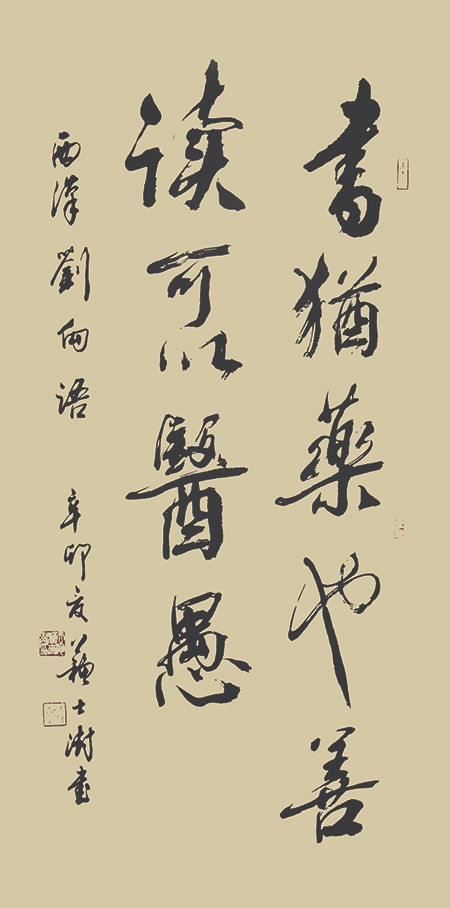 書猶藥也善
读可以醫愚
西漢劉向語 辛卯夏蘇士澍書